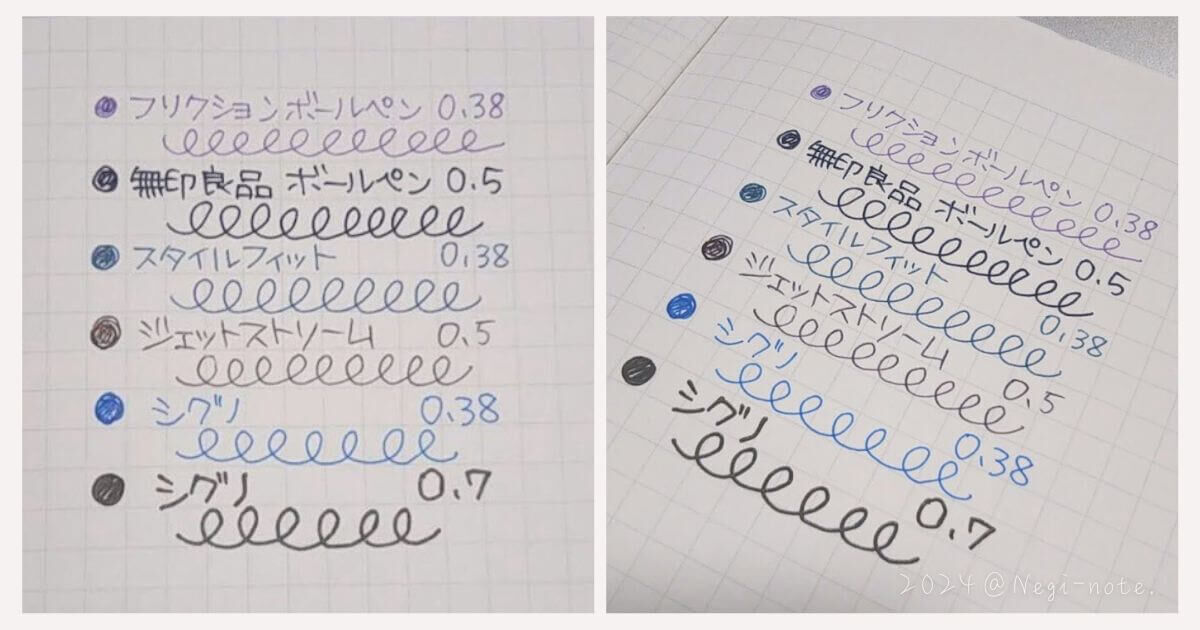 フリクションボールペン 0.38
無印良品 ボールペン 0.5
スタイルフィット 0.38
ジェットストリーム 0.5
シグノ 0.38
シグノ 0.7
フリクションボールペン 0.38
無印良品 ボールペン 0.5
スタイルフィット 0.38
ジェットストリーム 0.5
シグノ 0.38
シグノ 0.7
2024@Negi-note.